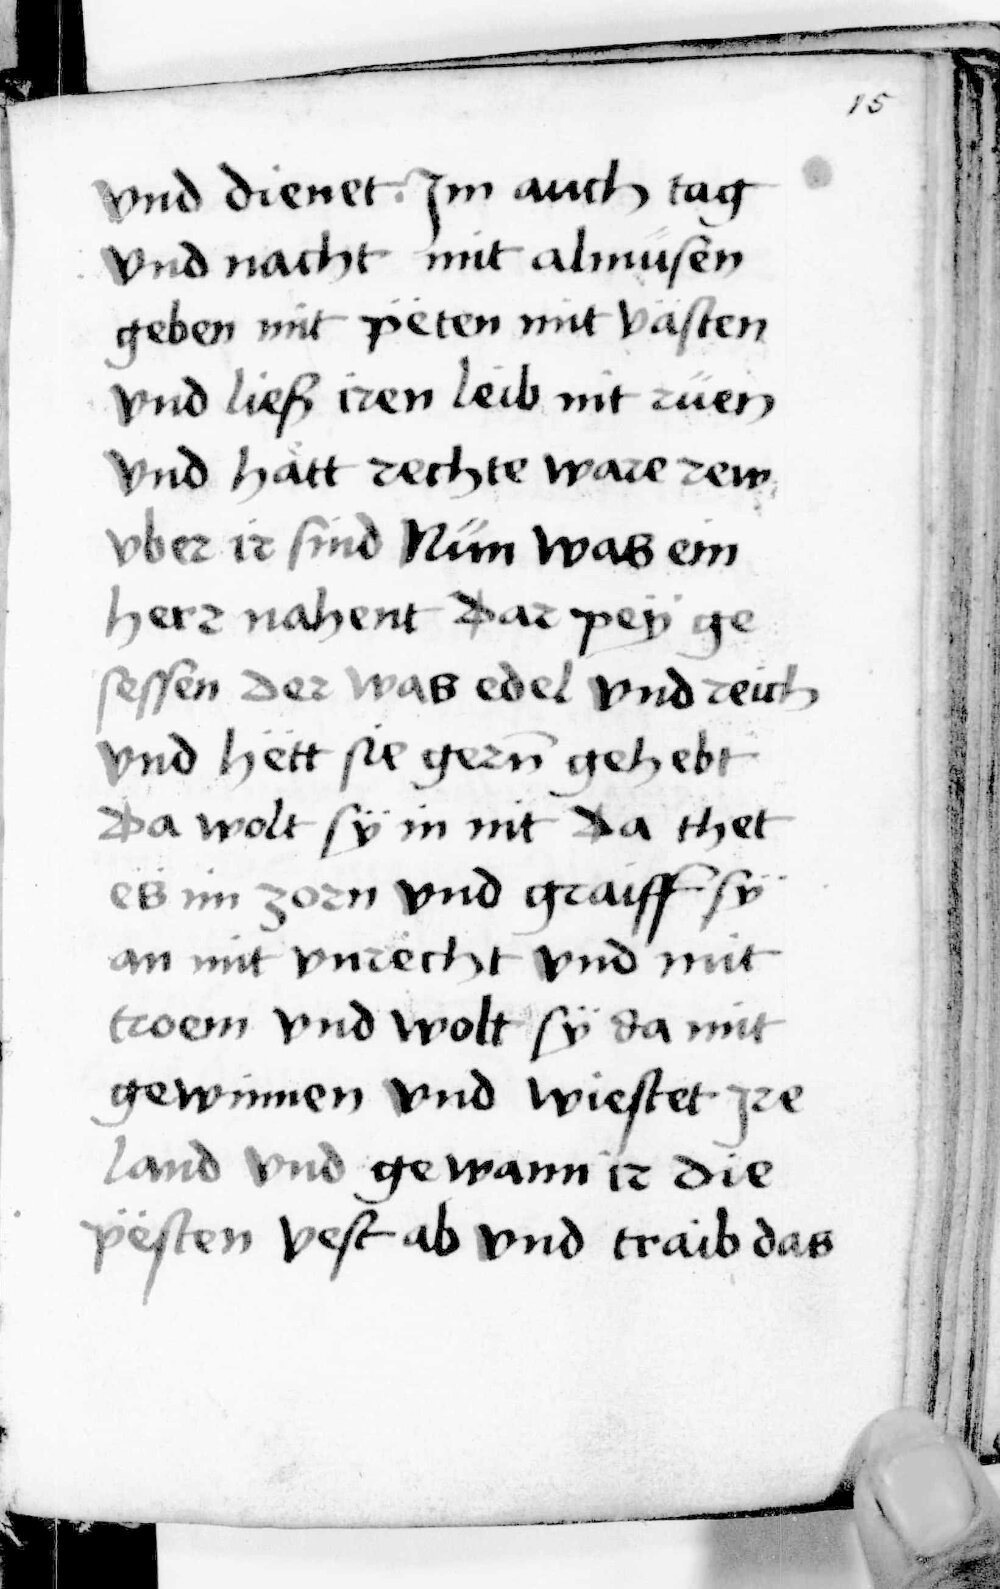 15
vnd dienet Im auch tag
vnd nacht mit almüsen
geben mit pëten mit västen
vnd ließ iren leib nit rüen
vnd hätt rechte ware rew
vber ir sind Nün was ein
herr nahent dar peÿ ge
sessen der was edel vnd reich
vnd hëtt sie gern̄ gehebt
da wolt sÿ in nit da thet
es im zorn vnd graiff sÿ
an mit vnrëcht vnd mit
troem vnd wolt sÿ da mit
gewinnen vnd wiestet Jre
land vnd gewann ir die
pësten vest ab vnd traib das